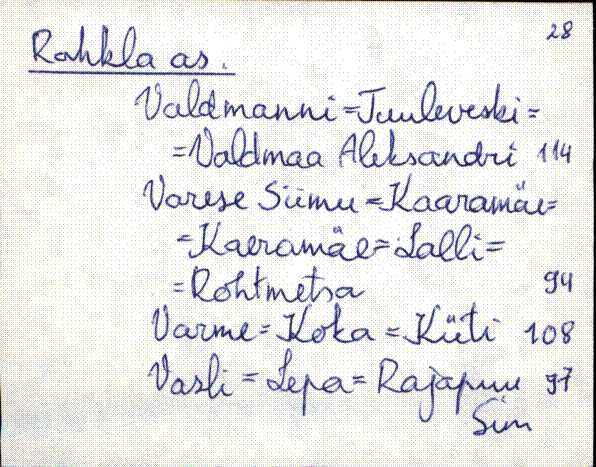 28
Rahkla as.
Valdmanni = Tuuleveski =
= Valdmaa Aleksandri 114
Varese Siimu = Kaaramäe =
= Kaeramäe = Lalli =
= Rohtmetsa 94
Varme = Koka = Küti 108
Vasli = Lepa = Rajapuu 97
Sim